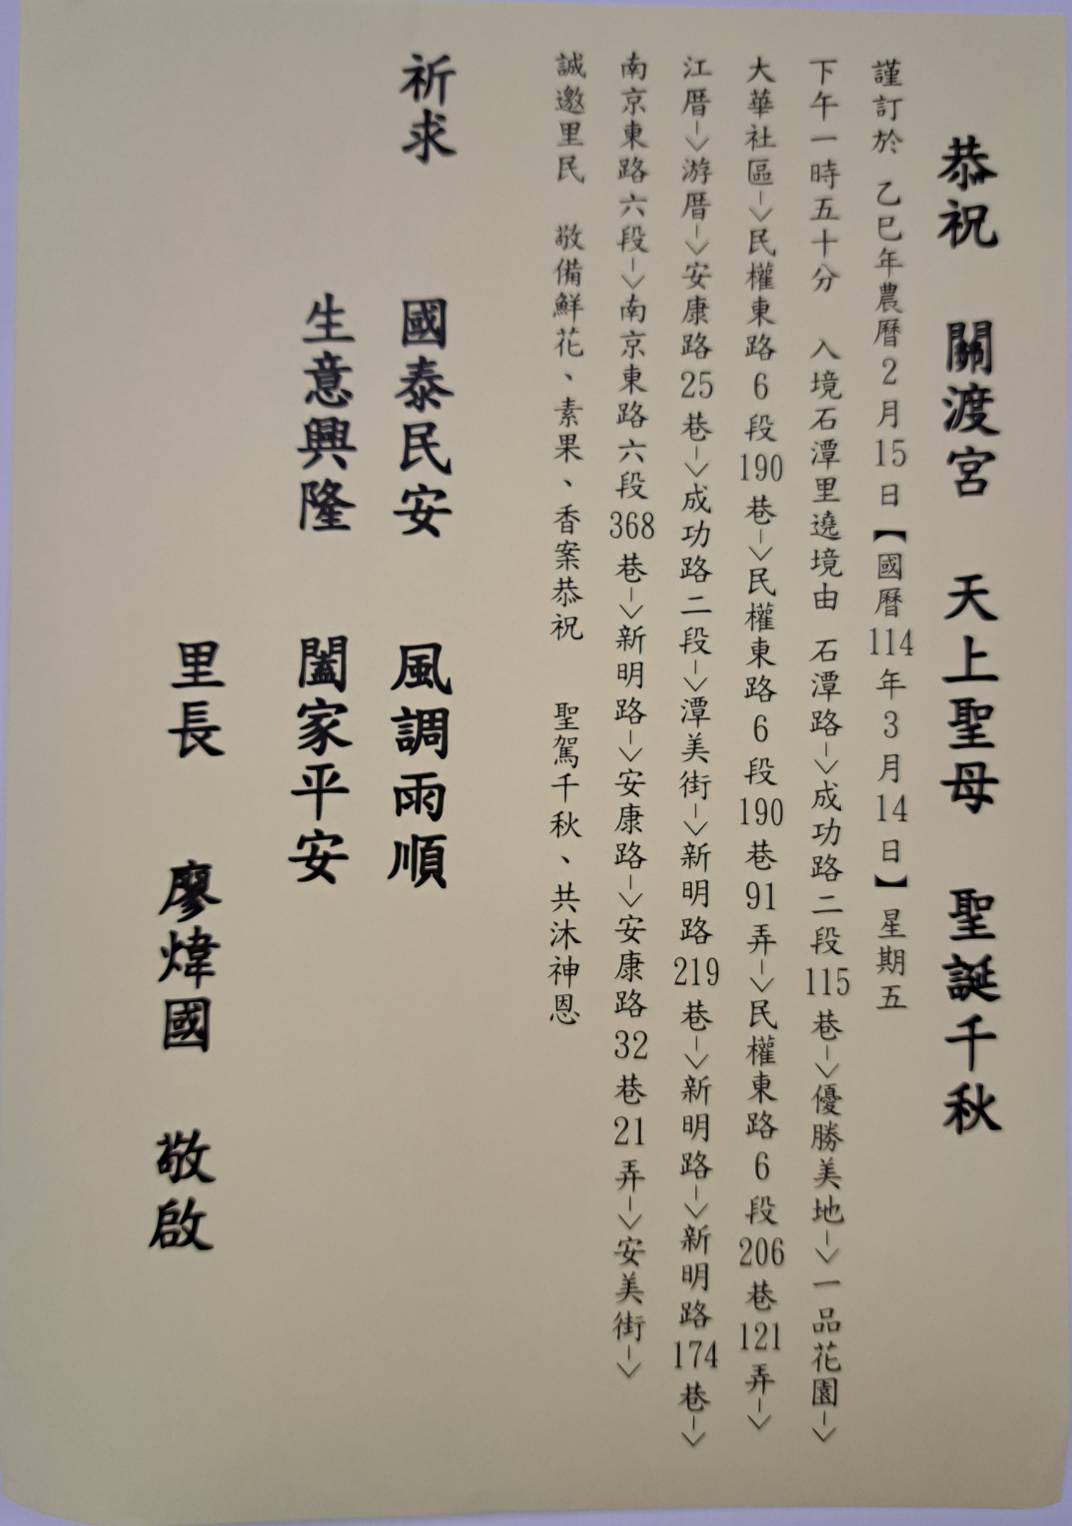 恭祝　關渡宮　天上聖母　聖誕千秋
謹訂於 乙巳年農曆2月15日【國曆114年3月14日】星期五
下午一時五十分　入境石潭里遶境由 石潭路->成功路二段115巷->優勝美地->一品花園->
大華社區->民權東路6段190巷->民權東路6段190巷91弄->民權東路6段206巷121弄->
江厝->游厝->安康路25巷->成功路二段->潭美街->新明路219巷->新明路->新明路174巷->
南京東路六段->南京東路六段368巷->新明路->安康路->安康路32巷21弄->安美街->
誠邀里民　敬備鮮花、素果、香案恭祝　聖駕千秋、共沐神恩
祈求　國泰民安　風調雨順
生意興隆　闔家平安
里長　廖煒國　敬啟